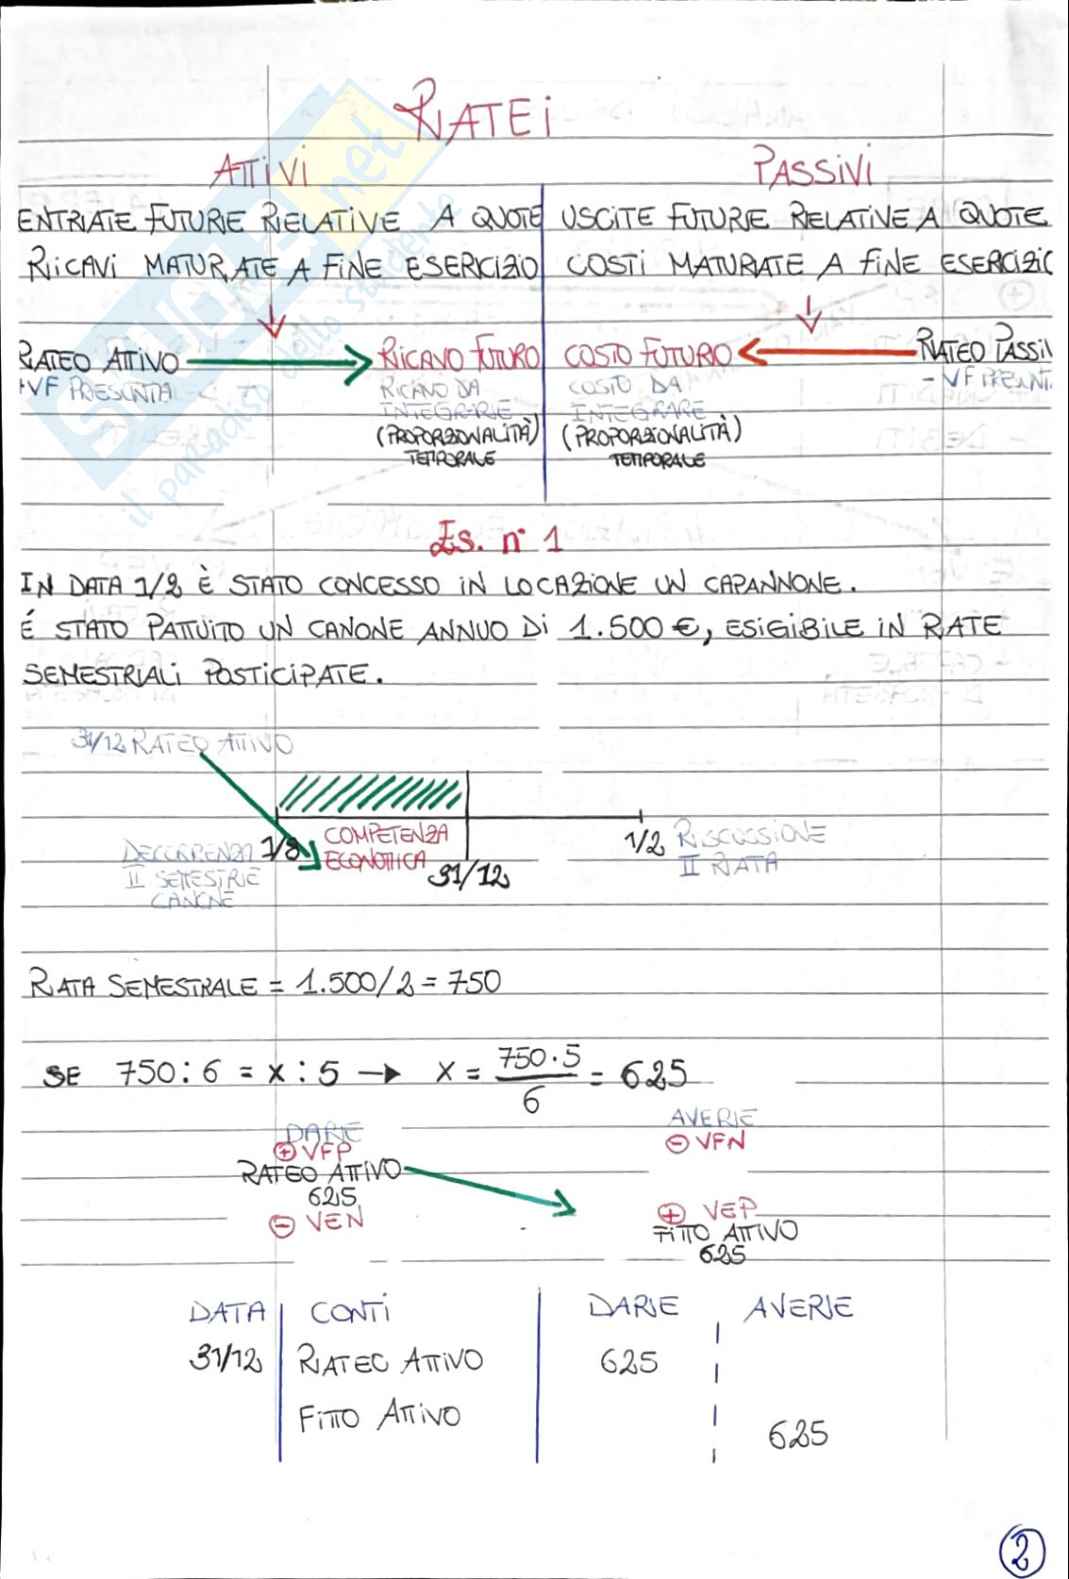 RATEI
ATTIVI PASSIVI
ENTRATE FUTURE RELATIVE A QUOTE USCITE FUTURE RELATIVE A QUOTE
RICAVI MATURATE A FINE ESERCIZIO COSTI MATURATE A FINE ESERCIZIO
RATEO ATTIVO RICAVO FUTURO COSTO FUTURO RATEO PASSIV
+VF PRESUNTA RICAVO DA COSTO DA - VF PRESUNT.
INTEGRARE INTEGRARE
(PROPORZIONALITÀ) (PROPORZIONALITÀ)
TEMPORALE TEMPORALE
Es. n° 1
IN DATA 1/2 È STATO CONCESSO IN LOCAZIONE UN CAPANNONE.
É STATO PATTUITO UN CANONE ANNUO DI 1.500 €, ESIGIBILE IN RATE
SEMESTRIALI POSTICIPATE.
31/12 RATEO ATTIVO
DECORRENZA 1/8 COMPETENZA 1/2 RISCOSSIONE
II SEMESTRE ECONOMICA 31/12 II RATA
CANONE
RATA SEMESTRALE = 1.500/2 = 750
SE 750 : 6 = x : 5 → x = 750 · 5 / 6 = 625
DARE AVERE
+ VFP - VFN
RATEO ATTIVO
625
- VEN + VEP
FITTO ATTIVO
625
DATA CONTI DARE AVERE
31/12 RATEO ATTIVO 625
FITTO ATTIVO 625
2
SKUOLA.net
il paradiso dello studente